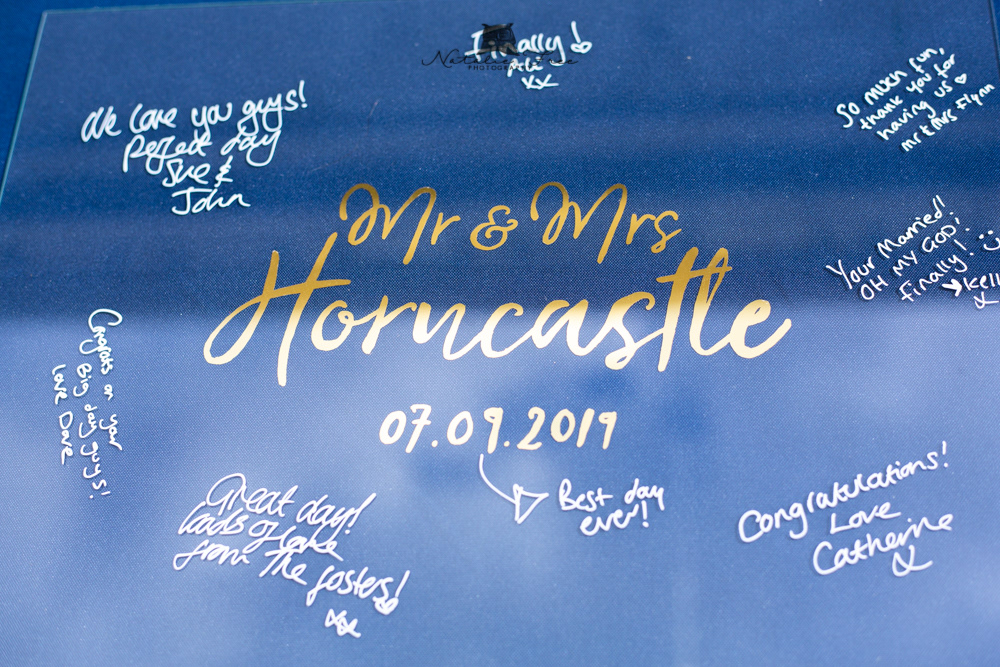 Finally!
xx
Natalie
PHOTOGRAPHY
We love you guys!
Perfect day
Sue &
John
So much fun,
thank you for
having us
mr & mrs Flynn
Mr & Mrs
Horncastle
Your Married!
OH MY GOD!
Finally! :)
Kell
x
Congrats on your
Big day guys!
Love Dave
07.09.2019
Best day
ever!
Great day!
loads of love
from The fosters!
xx
Congratulations!
Love
Catherine
x